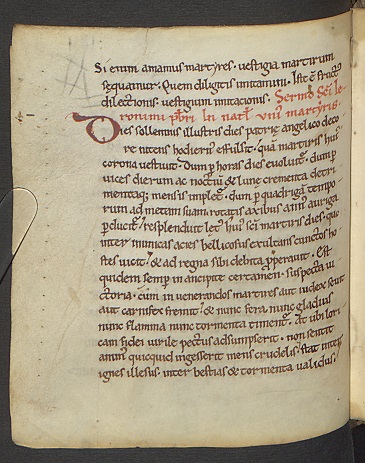 Si enim amamus martyres. vestigia martirum
sequamur. Quem diligitis imitamini. Iste ē fruct᷒
dilectionis. vestigium imitationis. Sermo Sc̄i Ie
ronimi p̄bri In natł vni᷒ martyris.
Dies sollennis illustris dies patrię angelico deco
re nitens hodiernus effulsit. quā martiris hui᷒
corona vestivit. Dum p horas dies evolvit᷒. dum p
vices dierum ac noctiū & lunę crementa detri
mentaq; mensis implet᷒. dum p quadrigā tempo
rum ad metam suam rotatis axibus anni auriga
p ducit᷒. resplenduit let᷒ hui᷒ sc̄i martiris dies. quo
inter inimicas acies bellicosus exultans cunctos ho
stes vicit. & ad regna sibi debita pperavit. Est
quidem semp in ancipite certamen. suspecta vi
ctoria. cum in venerandos martires aut iudex sevit
aut carnifex fremit. & nunc fera nunc gladius
nunc flamma nunc tormenta timent᷒. At ubi lori
cam fidei virile pectus adsumpserit. non sentit
anim᷒ quicquid ingesserit mens crudelis. stat inter
ignes illesus. inter bestias & tormenta validus.